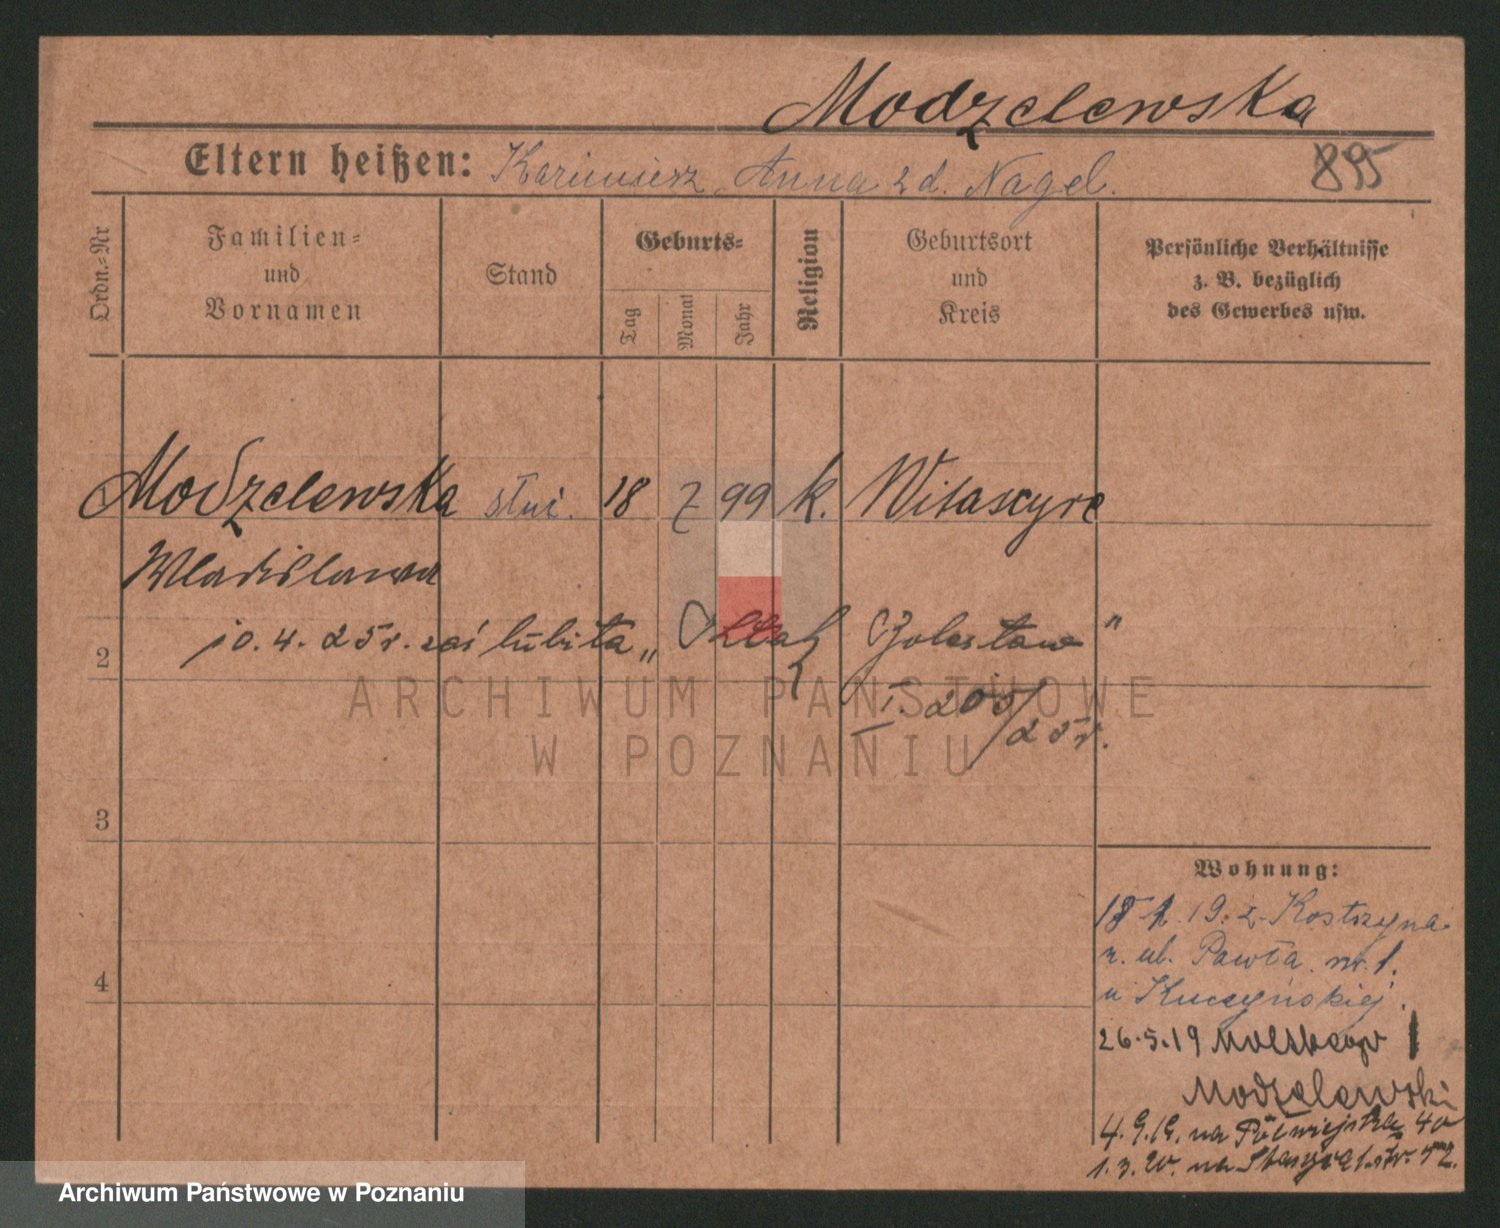 Modzelewska
Eltern heißen: Kazimierz, Anna z d. Nagel.
895
Ordn.-Nr
Familien-
und
Vornamen
Stand
Geburts-
Tag
Monat
Jahr
Religion
Geburtsort
und
Kreis
Persönliche Verhältnisse
z. B. bezüglich
des Gewerbes usw.
1 Modzelewska służ. 18 7 99 k. Witaszyce
Wladislawa
2 10. 4. 25 r. zaślubiła „
I. 205/25 r.
ARCHIWUM PAŃSTWOWE
W POZNANIU
3
4
Wohnung:
19. z Kostrzyna
n. ul. Pawła nr. 1.
u Kuczyńskiej.
26.5.19
Modzelewski
4. 9. 19. na Półwiejska 40
1. 3. 20. na
Archiwum Państwowe w Poznaniu